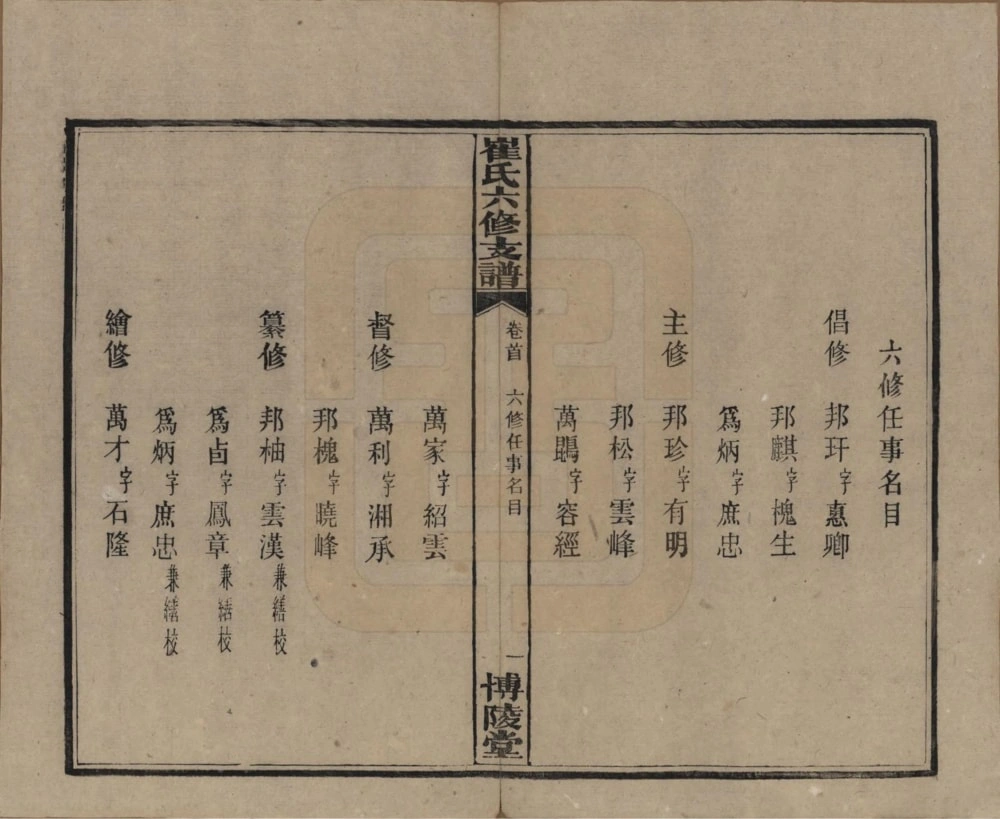 六修任事名目
倡修　邦玕字惠卿
邦麒字槐生
爲炳字庶忠
主修　邦珍字有明
邦松字雲峰
萬鵾字容經
崔氏六修支譜
卷首　六修任事名目
一
博陵堂
萬家字紹雲
督修　萬利字湘承
邦槐字曉峰
纂修　邦柚字雲漢兼繕校
爲卣字鳳章兼繕校
爲炳字庶忠兼繕校
繪修　萬才字石隆